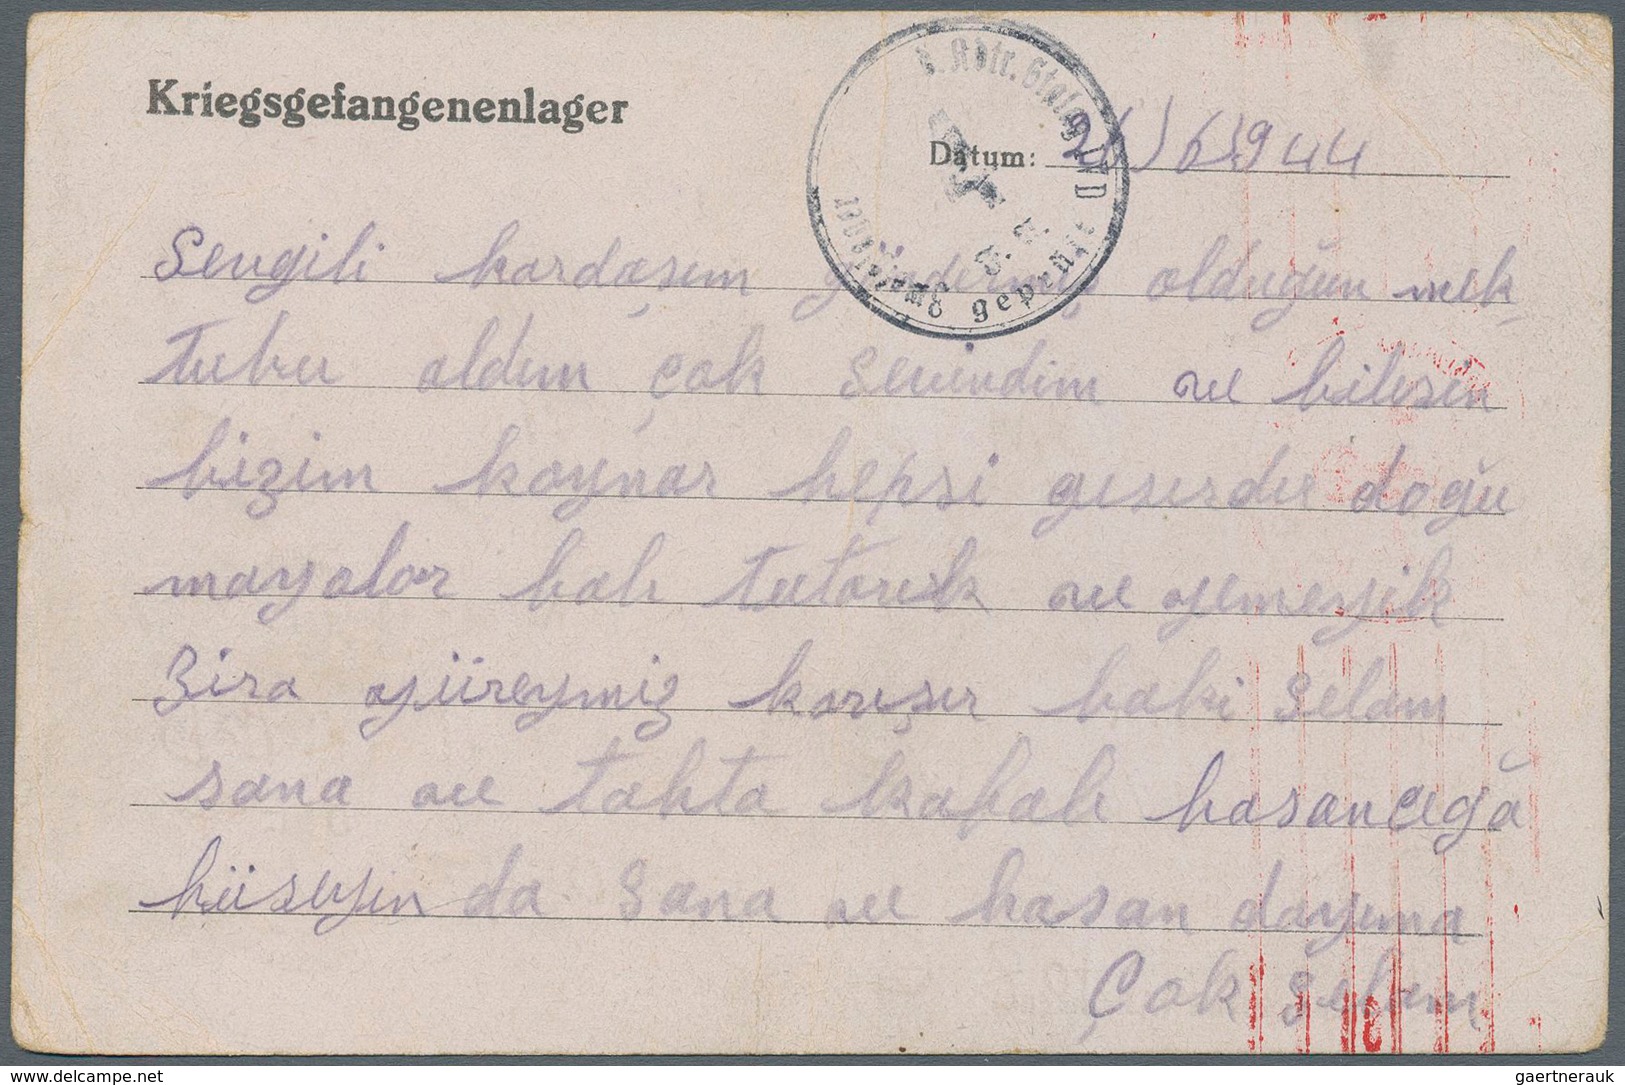 Kriegsgefangenenlager
Datum: 26/6/1944
Sevgili kardaşım göndermiş olduğun mek
tubu aldım çok sevindim ve bilesin
bizim koynar hepsi gısırdıe doğu
mayolar balı tutarık ve yemeyik
Zira yüreymiz karışır baki selam
sana ve tahta kafalı hasancığa
hüseyin da sana ve hasan dayıma
Çok selam
geprüft
gaertnerauk